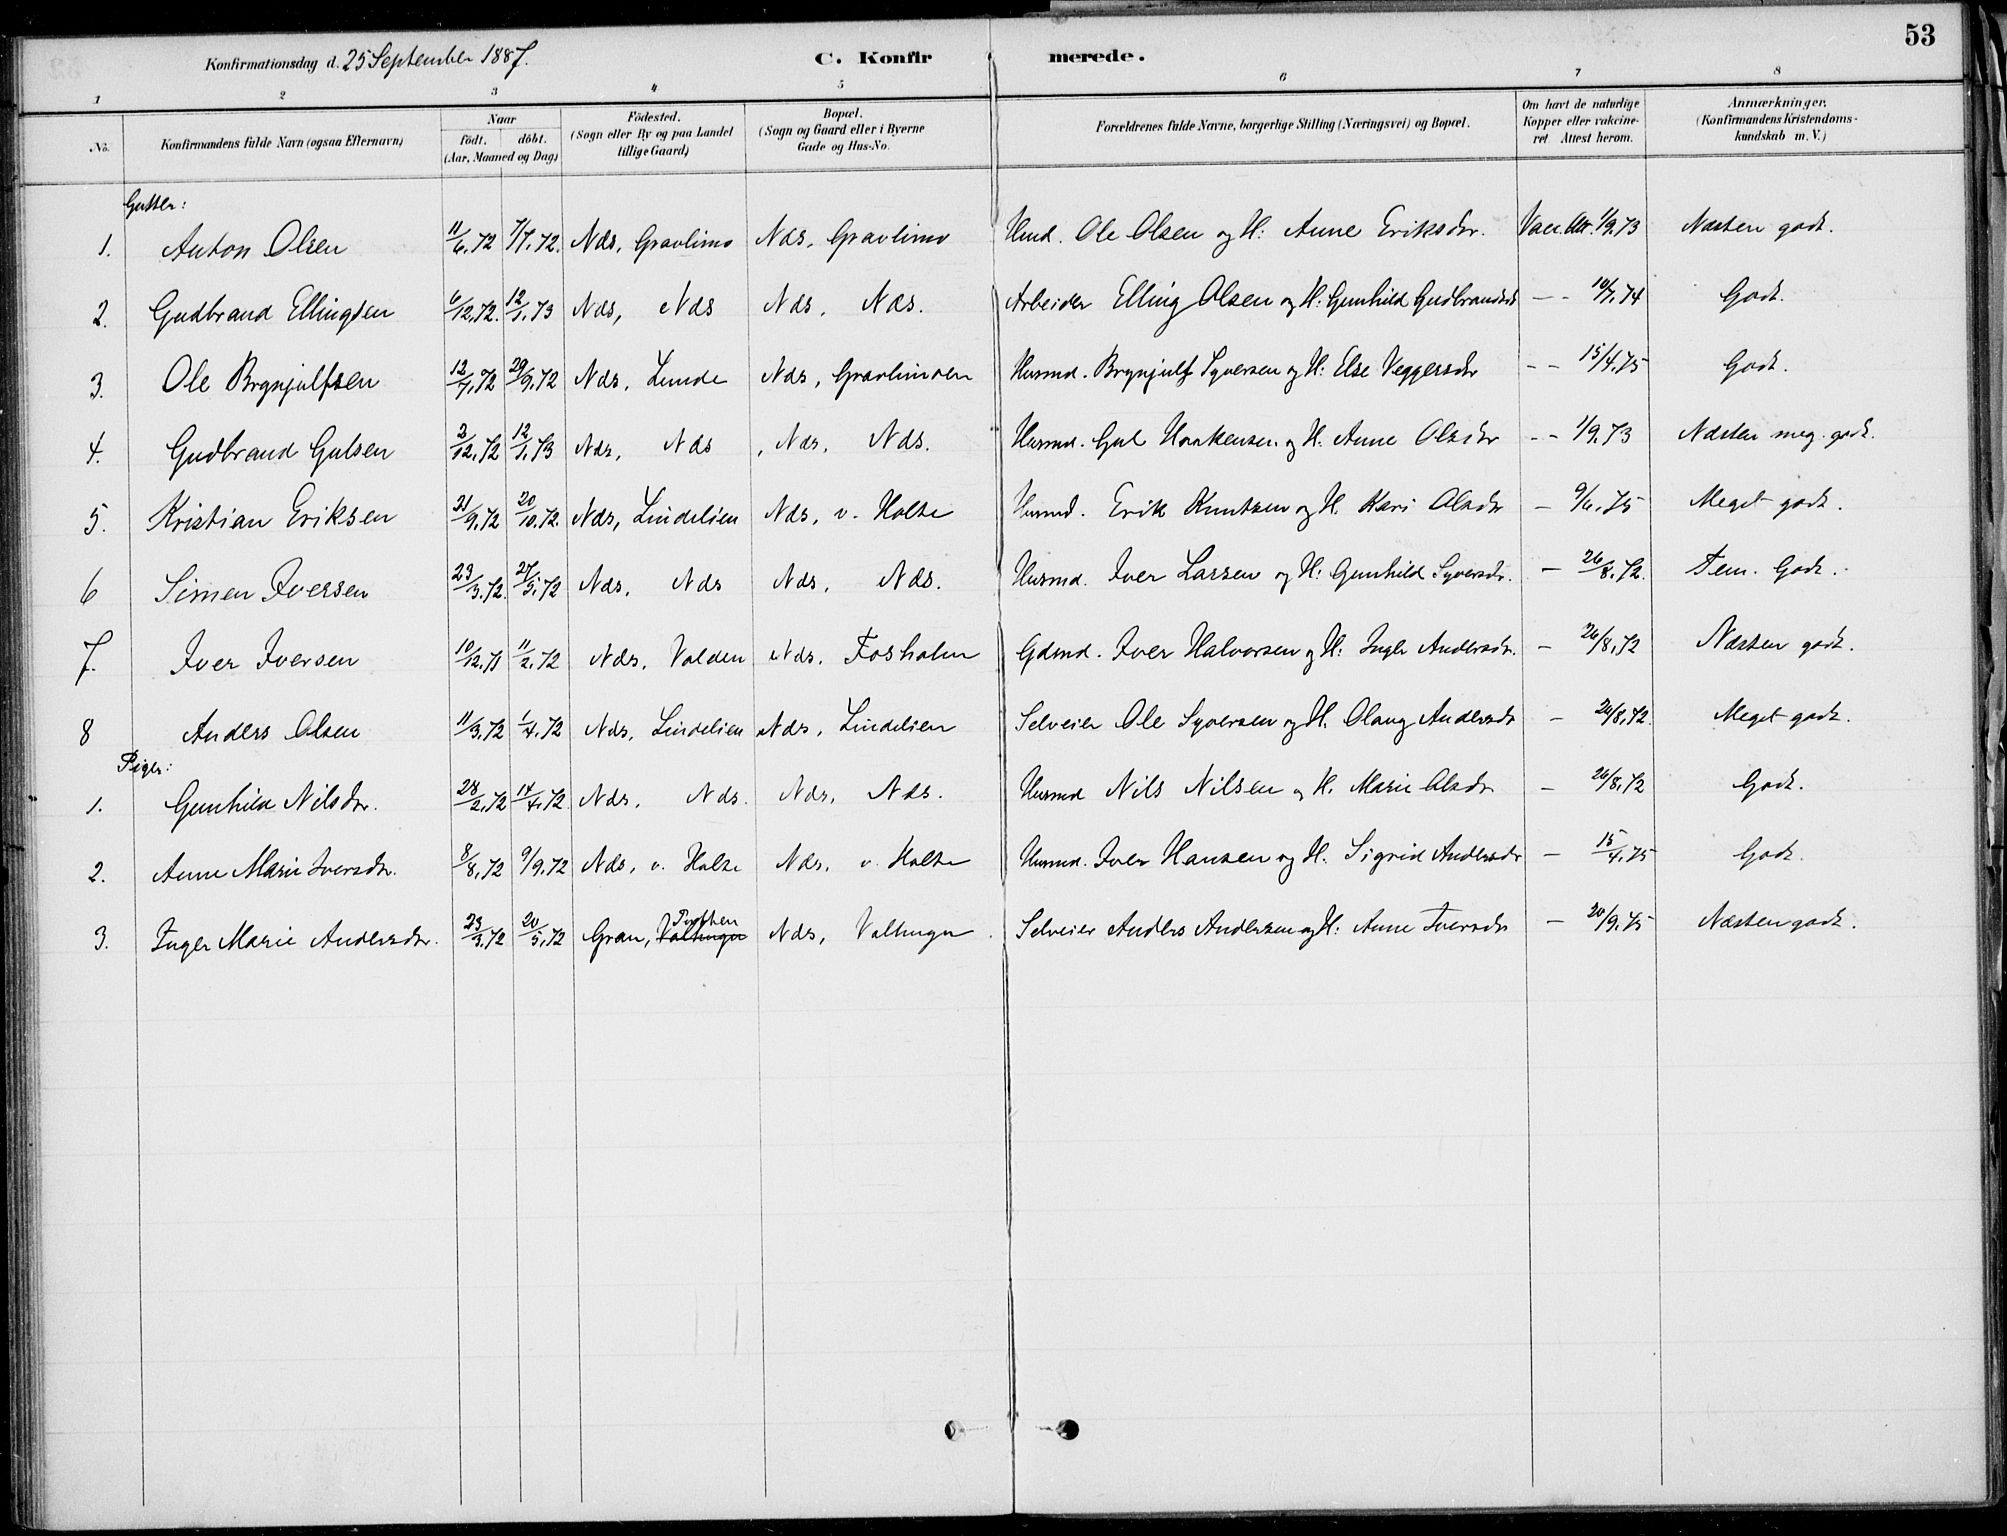 53
Konfirmationsdag d. 25 September 1887.
C. Konfirmerede.
1 2 3 4 5 6 7 8
No. Konfirmandens fulde Navn (ogsaa Efternavn) Naar födt. döbt. (Aar, Maaned og Dag) Födested. (Sogn eller By og paa Landet tillige Gaard) Bopæl. (Sogn og Gaard eller i Byerne Gade og Hus-No. Forældrenes fulde Navne, borgerlige Stilling (Næringsvei) og Bopæl. Om havt de naturlige Kopper eller vakcineret Attest herom. Anmærkninger. (Konfirmandens Kristendomskundskab m. V.)
Gutter:
1. Anton Olsen 11/6.72 7/7.72. Næs, Gravlimo Næs, Gravlimo Husmd. Ole Olsen og H: Anne Eriksdr. Vacc. Att. 1/9.73 Næsten godt.
2. Gudbrand Ellingsen 6/12.72. 12/1.73 Næs, Næs Næs, Næs. Arbeider Elling Olsen og H: Gunhild Gudbrandsdr - - 10/7.74 Godt.
3. Ole Brynjulfsen 12/7.72 29/9.72 Næs, Lunde Næs, Gravlimoen Husmd. Brynjulf Syversen og H: Else Veggersdr - - 15/4.75 Godt.
4. Gudbrand Gulsen 2/12.72 12/1.73 Næs, Næs Næs, Næs. Husmd. Gul Haakensen og H. Anne Olsdr - - 1/9.73 Næsten meg. godt.
5. Kristian Eriksen 21/9.72 20/10.72. Næs, Lindelien Næs, v. Holte Husmd. Erik Knutsen og H. Kari Olsdr - 9/6.75 Meget godt.
6 Simen Iversen 23/3.72. 27/5.72 Næs, Næs Næs, Næs. Husmd. Iver Larsen og H: Gunhild Syversdr. - 26/8.72. Tem. Godt.
7. Iver Iversen 10/12.71 11/2.72 Næs, Volden Næs. Fosholm Gdmd. Iver Halvorsen og H: Ingebr Andersdr. - 26/8.72 Næsten godt.
8 Anders Olsen 11/3.72 1/4.72 Næs, Lindelien Næs, Lindelien Selveier Ole Syversen og H. Olaug Andersdr - 26/8.72. Meget godt.
Piger:
1. Gunhild Nilsdr. 28/2.72 14/4.72 Næs, Næs. Næs, Næs. Husmd Nils Nilsen og H. Marie Olsdr - 26/8.72 Godt.
2. Anne Marie Iversdr. 8/8.72 9/9.72 Næs, v. Holte Næs, v. Holte Husmd. Iver Hansen og H. Sigrid Andersdr - 15/4.75 Godt.
3. Inger Marie Andersdr. 23/3.72 20/5.72 Gran, Næs, Valtunger Selveier Anders Andersen og H: Anne Iversdr - 20/9.75 Næsten godt.